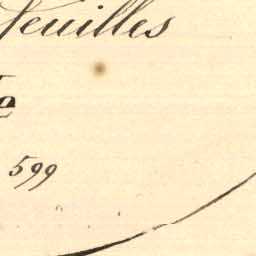 feuilles
599